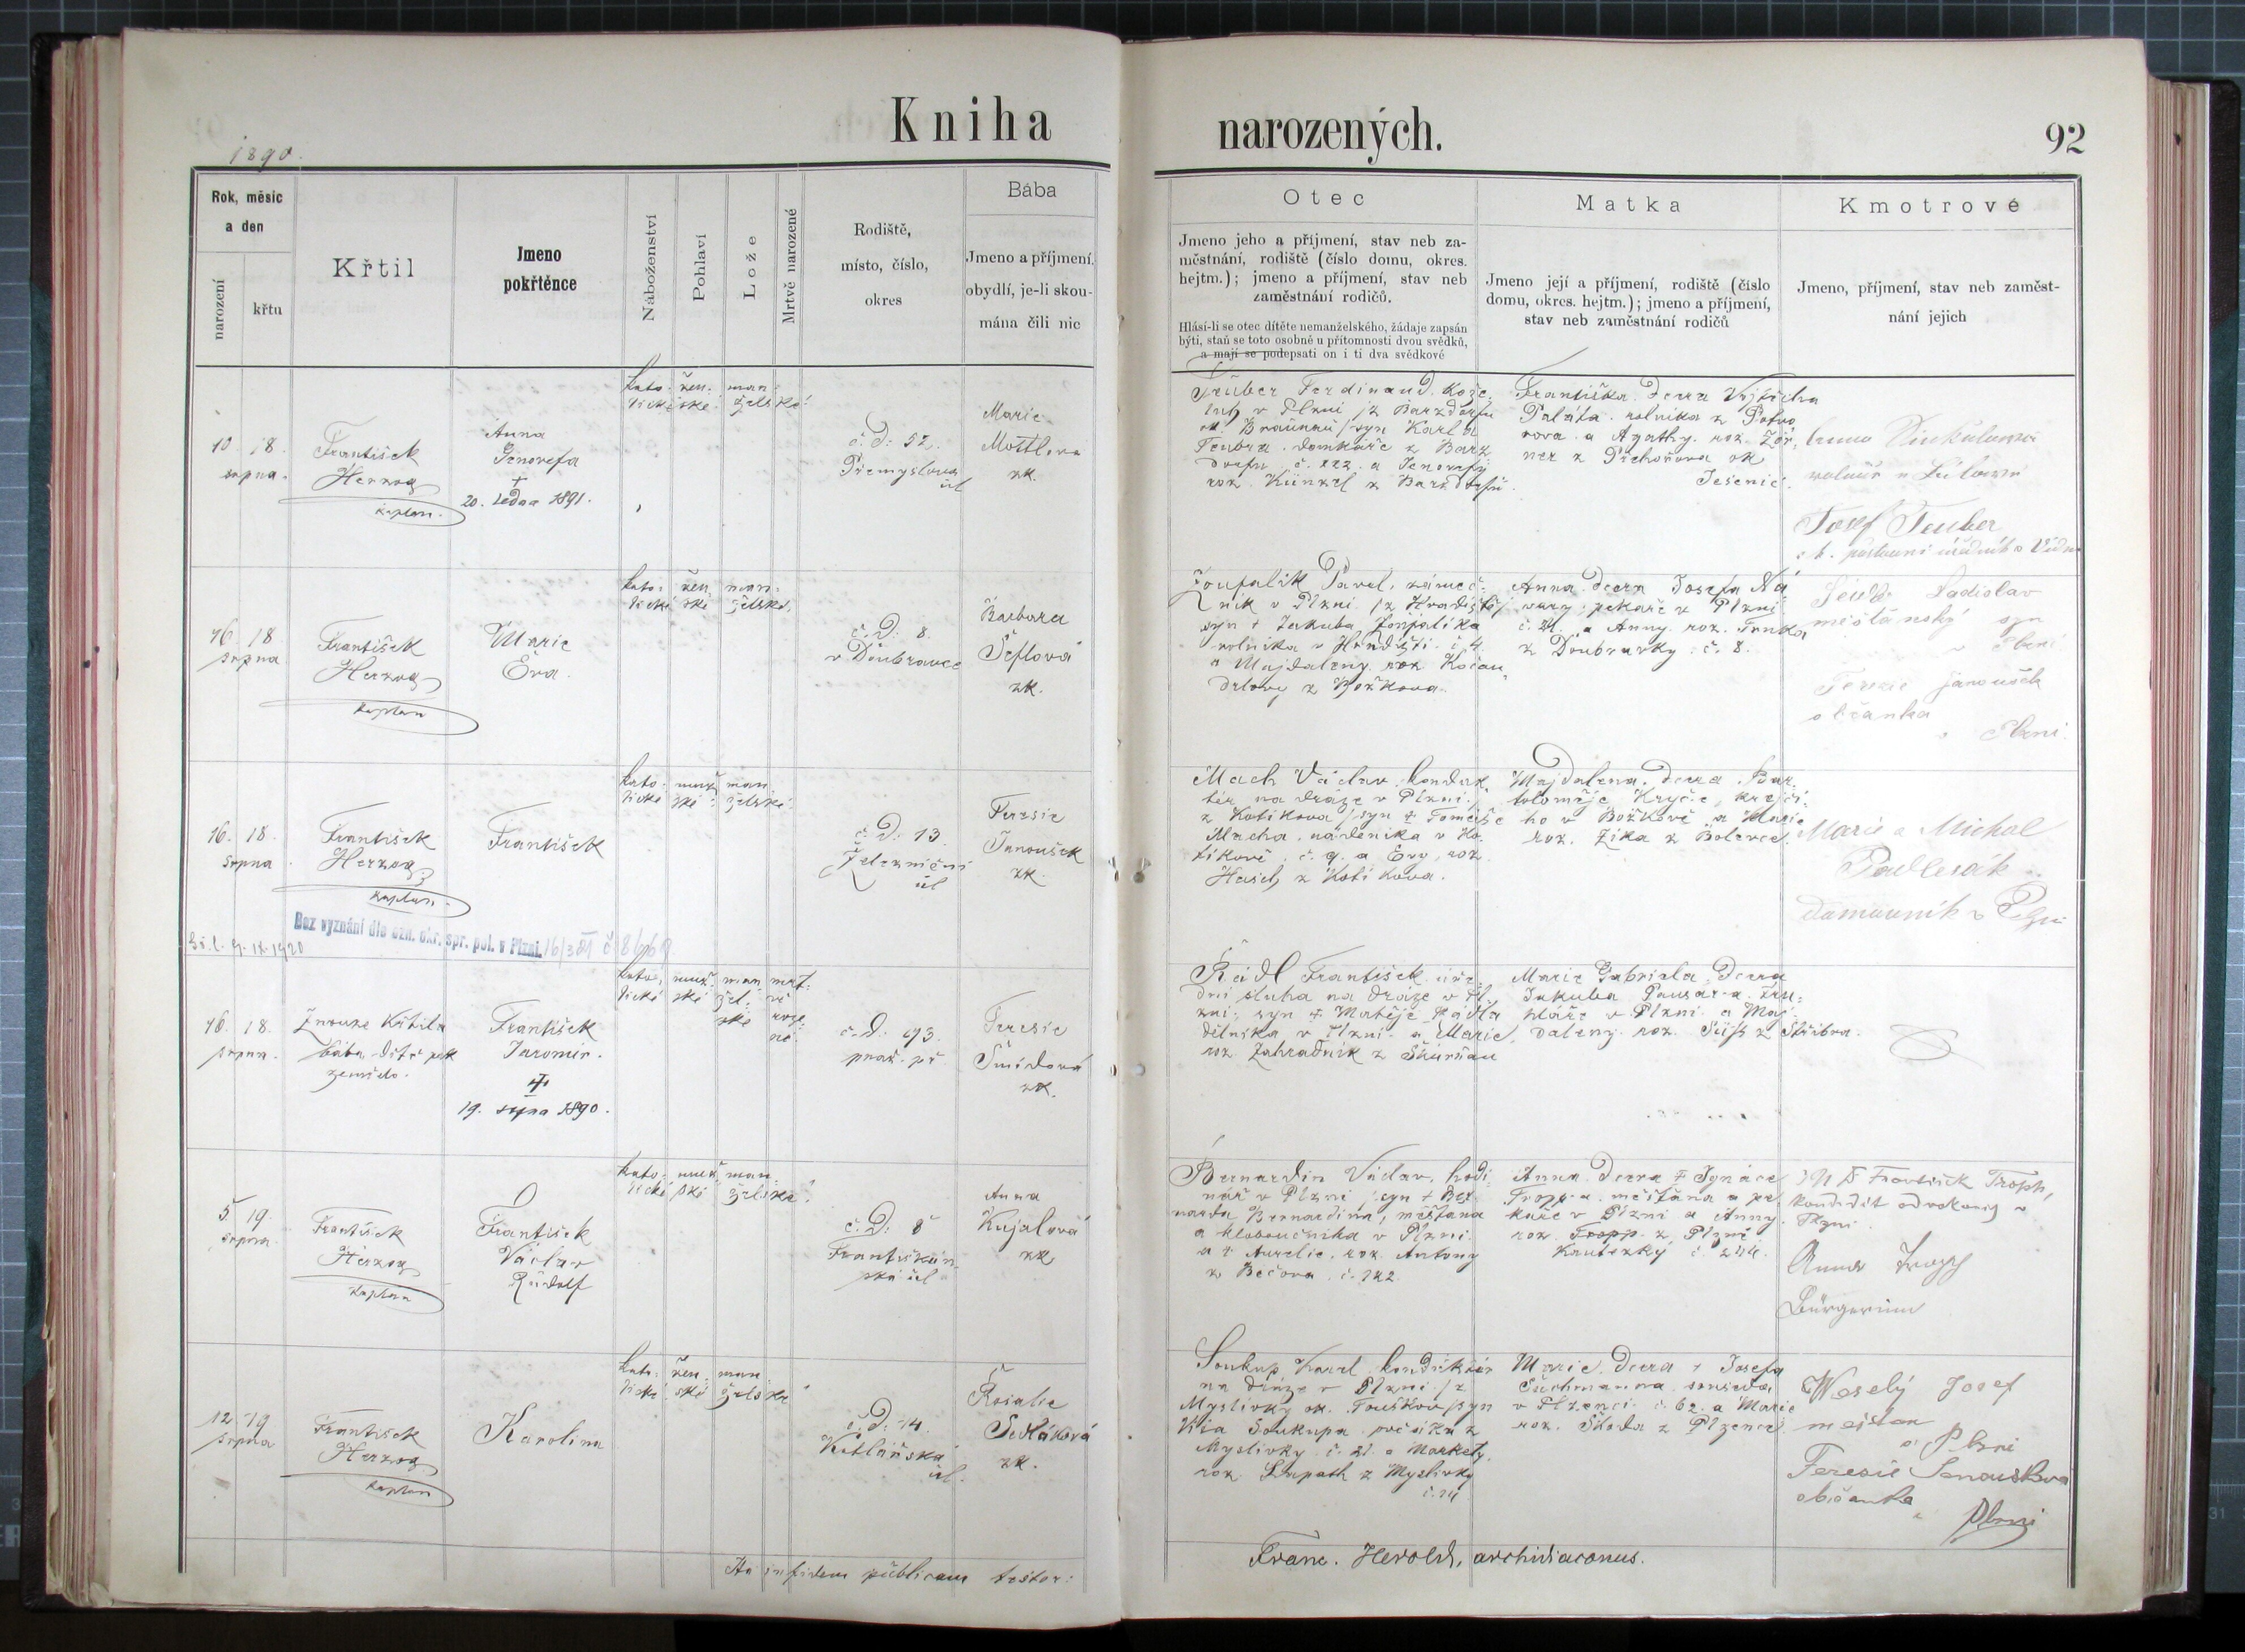 Kniha
narozených.
92
1890.
Rok, měsíc
a den
narození
křtu
Křtil
Jmeno
pokřtěnce
Náboženství
Pohlaví
Lože
Mrtvě narozené
Rodiště,
místo, číslo,
okres
Bába
Jmeno a příjmení,
obydlí, je-li skou-
mána čili nic
Otec
Jmeno jeho a příjmení, stav neb za-
městnání, rodiště (číslo domu, okres.
hejtm.); jmeno a příjmení, stav neb
zaměstnání rodičů.
Hlásí-li se otec dítěte nemanželského, žádaje zapsán
býti, staň se toto osobně u přítomnosti dvou svědků,
a mají se podepsati on i ti dva svědkové
Matka
Jmeno její a příjmení, rodiště (číslo
domu, okres. hejtm.); jmeno a příjmení,
stav neb zaměstnání rodičů
Kmotrové
Jmeno, příjmení, stav neb zaměst-
nání jejich
10. 18.
srpna.
František
Herzog
kaplan.
Anna
Genovefa
†
20. ledna 1891.
kato-
lické
žen-
ské
man-
želské
č. d. 52.
Přemyslova
ul.
Marie
Mottlova
zk.
Teuber Ferdinand, kože-
luh v Plzni /z Barzdorfu
ok. Braunau/ syn Karla
Teubra, domkáře z Barz
dorfu č. 122. a Jenovefy
roz. Künzel z Barzdorfu.
Františka dcera Vojtěcha
rolníka z
a Agathy roz.
ner z ok
Jesenic.
Josef Teuber
c. k. poštovní úředník v Vídni
16. 18.
srpna
František
Herzog
kaplan
Marie
Eva.
kato-
lické
žen-
ské
man-
želské.
č. d. 8.
v Doubravce
Barbora
Šeflová
zk.
Zoufalík Pavel, zámeč-
ník v Plzni /z Hradiště/
syn † Jakuba Zoufalíka
rolníka v Hradišti č. 4.
a Majdaleny roz. Kočan-
drlovy z Božkova.
Anna dcera Josefa
pekaře v Plzni
č. 21. a Anny roz. Trnka
z Doubravky č. 8.
Ladislav
měšťanský syn
v Plzni
Terezie Janoušek
občanka
v Plzni.
16. 18.
srpna
František
Herzog
kaplan.
František
kato-
lické
muž-
ské
man-
želské.
č. d. 13.
Železniční
ul
Teresie
Janoušek
zk.
Bez vyznání dle ozn. okr. spr. pol. v Plzni.
Mach Václav konduk-
tér na dráze v Plzni /
z Kotíkova / syn † Tomáše
Macha, nádeníka v Ko-
tíkově č. 9. a Evy, roz.
Hasch z Kotíkova.
Majdalena, dcera Bar-
toloměje Kryče, krejčí-
ho v Božkově a Marie
roz. Zika z Bolevce.
Marie a Michal
Padlesák
domovník v Plzni
16. 18.
srpna.
Z nouze křtila
bába dítě pak
zemřelo.
František
Jaromír.
†
19. srpna 1890.
kato-
lické
muž-
ské
man-
žel-
ské
mrt-
vě
roze-
né.
č. d. 93.
praž. př.
Teresie
Šmídová
zk.
Rádl František, úře-
dní sluha na dráze v Pl-
zni, syn † Matěje Rádla
dělníka v Plzni a Marie
roz. Zahradník z Skurňan
Marie Gabriela, dcera
Jakuba
v Plzni a Maj-
daleny roz. Süss z Stříbra.
5. 19.
srpna.
František
Herzog
kaplan
František
Václav
Rudolf
kato-
lické
muž-
ské
man-
želské.
č. d. 8
Františkán-
ská ul
Anna
Kujalová
zk.
Bernardin Václav, hodi-
nář v Plzni, syn † Ber-
narda Bernardina, měšťana
a kloboučníka v Plzni
a † Aurelie, roz. Antony
z Bečova č. 122.
Anna dcera † Ignáce
Tropp-a měšťana a pe-
kaře v Plzni a Anny
roz. Tropp z Plzně
Kautezky č. 244.
František Tropp,
kandidát advokacie v
Plzni.
Anna Tropp
Bürgerinn
12. 19.
srpna
František
Herzog
kaplan
Karolina
kato-
lické
žen-
ské
man-
želské
č. d. 14.
ul.
Rosalie
Sedláková
zk.
Soukup Karel, konduktér
na dráze v Plzni /z
Myslivky ok. Touškov/ syn
Víta Soukupa z
Myslivky č. 21. a Markety,
roz. z Myslivky
č. 14
Marie, dcera † Josefa
Suchmanna, souseda
v Plzenci č. 62. a Marie
roz. Škoda z Plzence.
Weselý Josef
mešťan
v Plzni
Teresie Janouškova
občanka
v Plzni
Ita in fidem publicam testor:
Franc. Herold, archidiaconus.